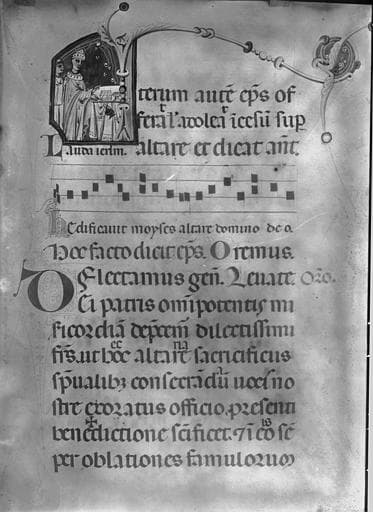 terum aute eps of
fera l' adolea incesu sup
Lauda ierlm. altare et dicat ant.
Edificauit moyses altare domino de o.
Hoc facto dicit eps. Oremus.
Flectamus gen. Leuate. Oro.
Dei patris omipotentis mi
sicordia deprecem dilectissimi
frs. ut hoc altare sacrificiis
spualibz consecrandu uocis no
stre exoratus officio. presenti
benedictione scificet. 7 i eo se
per oblationes famulorum